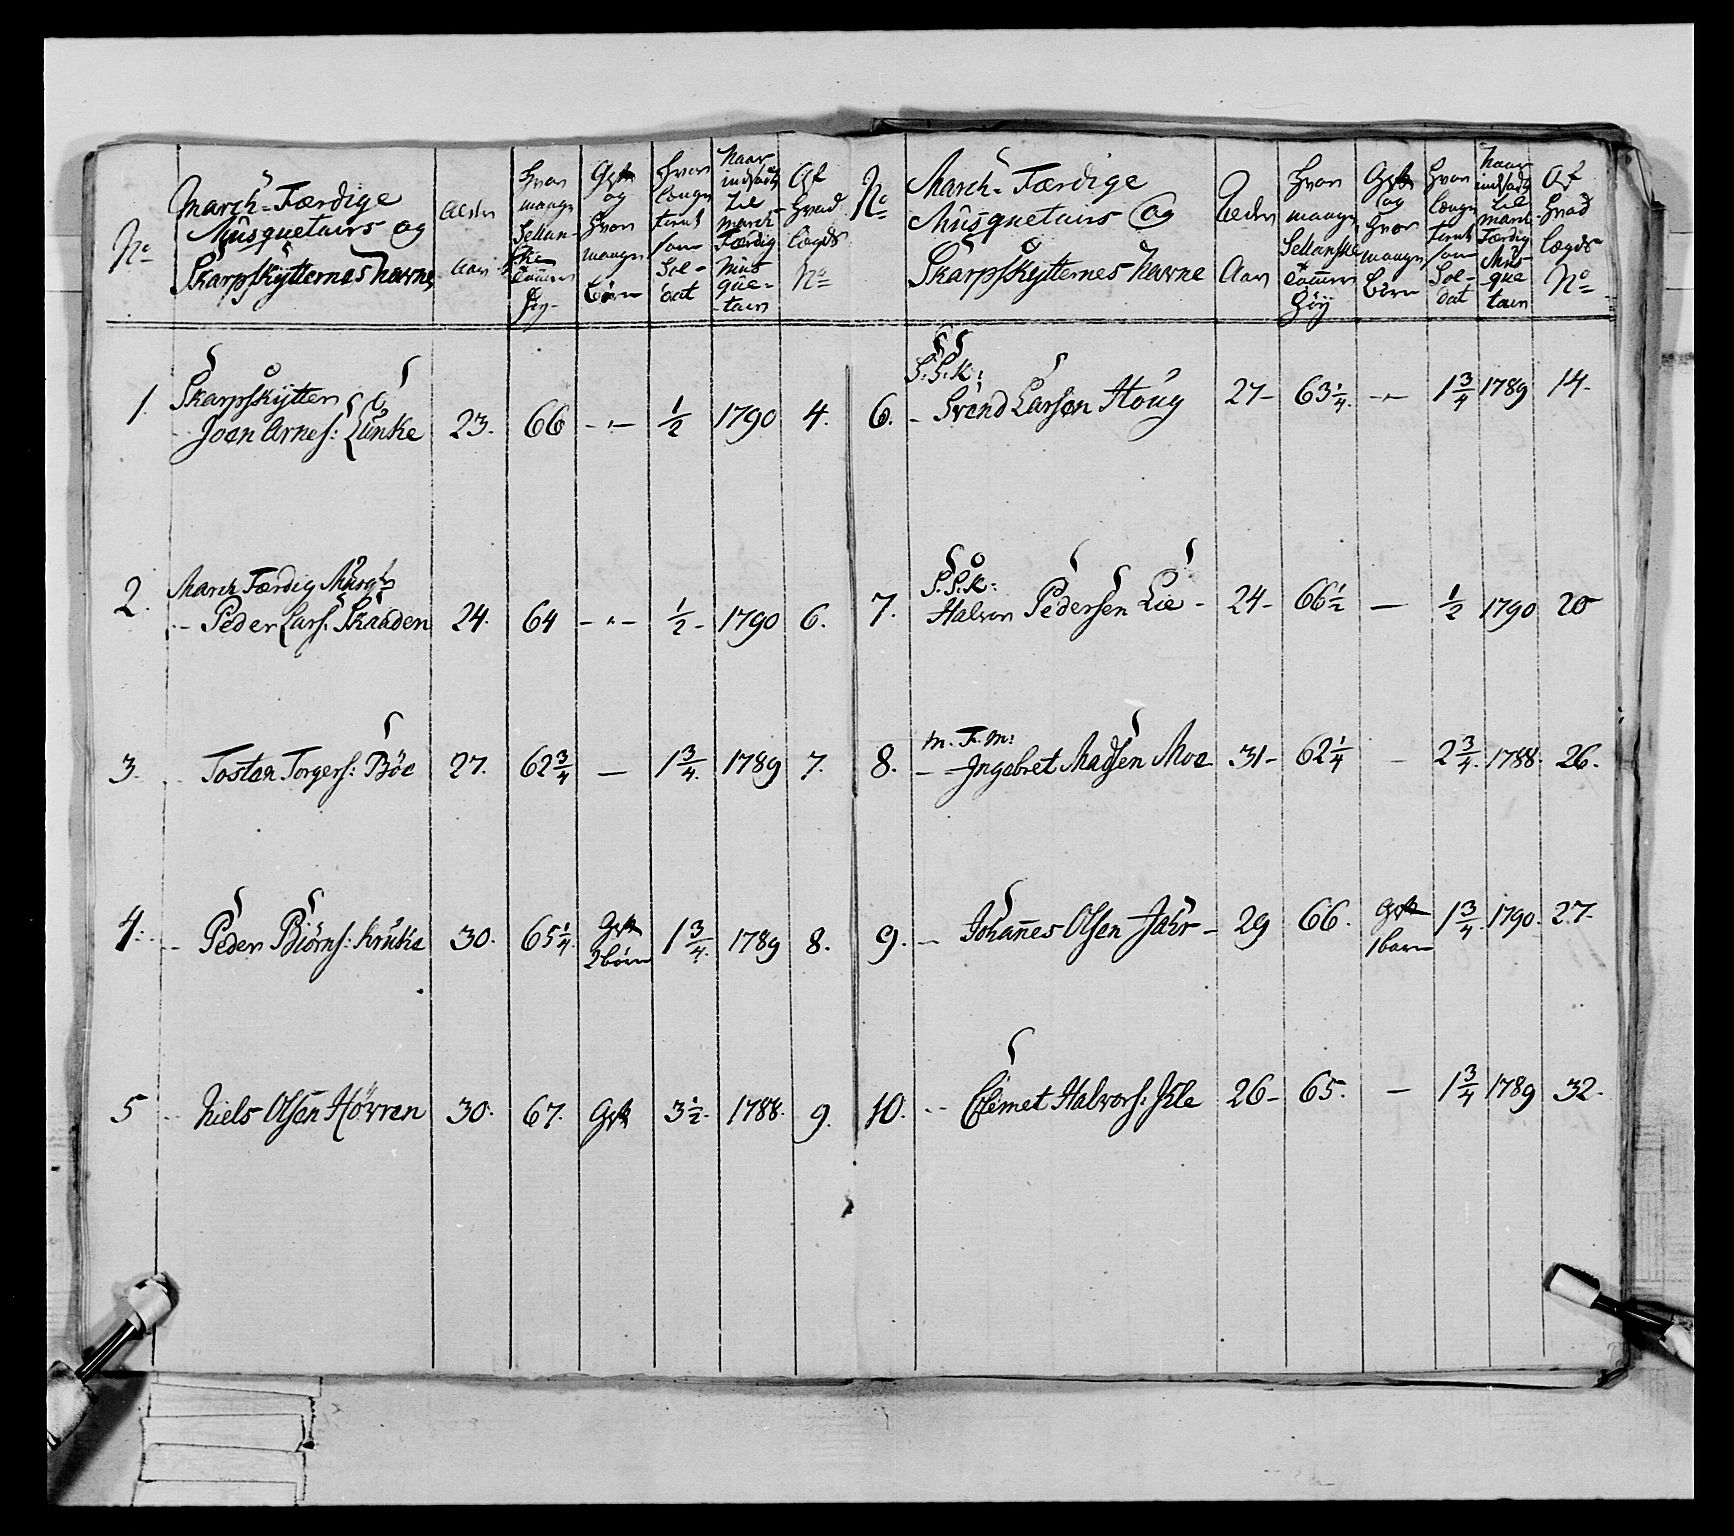 No
March-Færdige
Musquetairs og
Skarpskytternes Navne
Alder
Aar
Hvor
mange
Sellan-
ske
Tommer
Høy
Gift
og
Hvor
mange
Børn
Hvor
længe
tient
som
Sol-
dat
Naar
indsadt
til
march
Færdig
Mus
que-
tair
Af
Hvad
Lægds
No
1. Skarpskytter
Joen Arnes: Lunke 23. 66 - " - 1/2 1790 4.
2. March Færdig Musqr
Peder Lars: Skaaden 24. 64 - " - 1/2 - 1790 6.
3. Tosten Torgers: Böe 27. 62 3/4 - 1 3/4. 1789 7.
4. Peder Biörns: Kruke 30. 65 1/4. Gift
2 börn 1 3/4. 1789 8.
5 Niels Olsen Hörven 30. 67. Gift 3 1/2. 1788. 9.
No
March-Færdige
Musquetairs Og
Skarpskytternes Navne
Alder
Aar
Hvor
mange
Sellanske
Tommer
Höÿ
Gift
og
Hvor
mange
Börn
Hvor
længe
tient
som
Sol-
dat
Naar
indsadt
til
march
Færdig
Mus-
que
tair
Af
Hvad
Lægds
No
S: S: K:
6. - Svend Larsen Houg 27 - 63 1/4. - " - 1 3/4 1789 14.
S: S: K:
7. Halvor Pedersen Lie - 24 - 66 1/2 - 1/2 1790 20
M. F. M:
8. - Ingebret Madsen Moe 31 - 62 1/4 - 2 3/4. 1788. 26.
9. - Johannes Olsen Jahr - 29 66. Gift
1 barn 1 3/4. 1790. 27.
10. Clemet Halvors: Ille 26 - 65. - 1 3/4 1789 32.